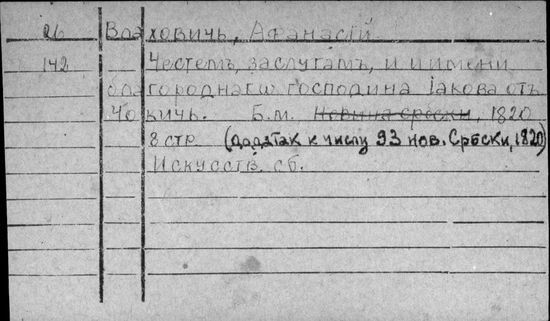 26 Влаховичь, Аѳанасій.
142 Честемъ, заслугамъ, и имени
благороднагѡ господина Іакова отъ
Чокичь. Б.м. Новина србски, 1820
8 стр (додатак к числу 93 нов. Србски, 1820)
Искусств. сб.